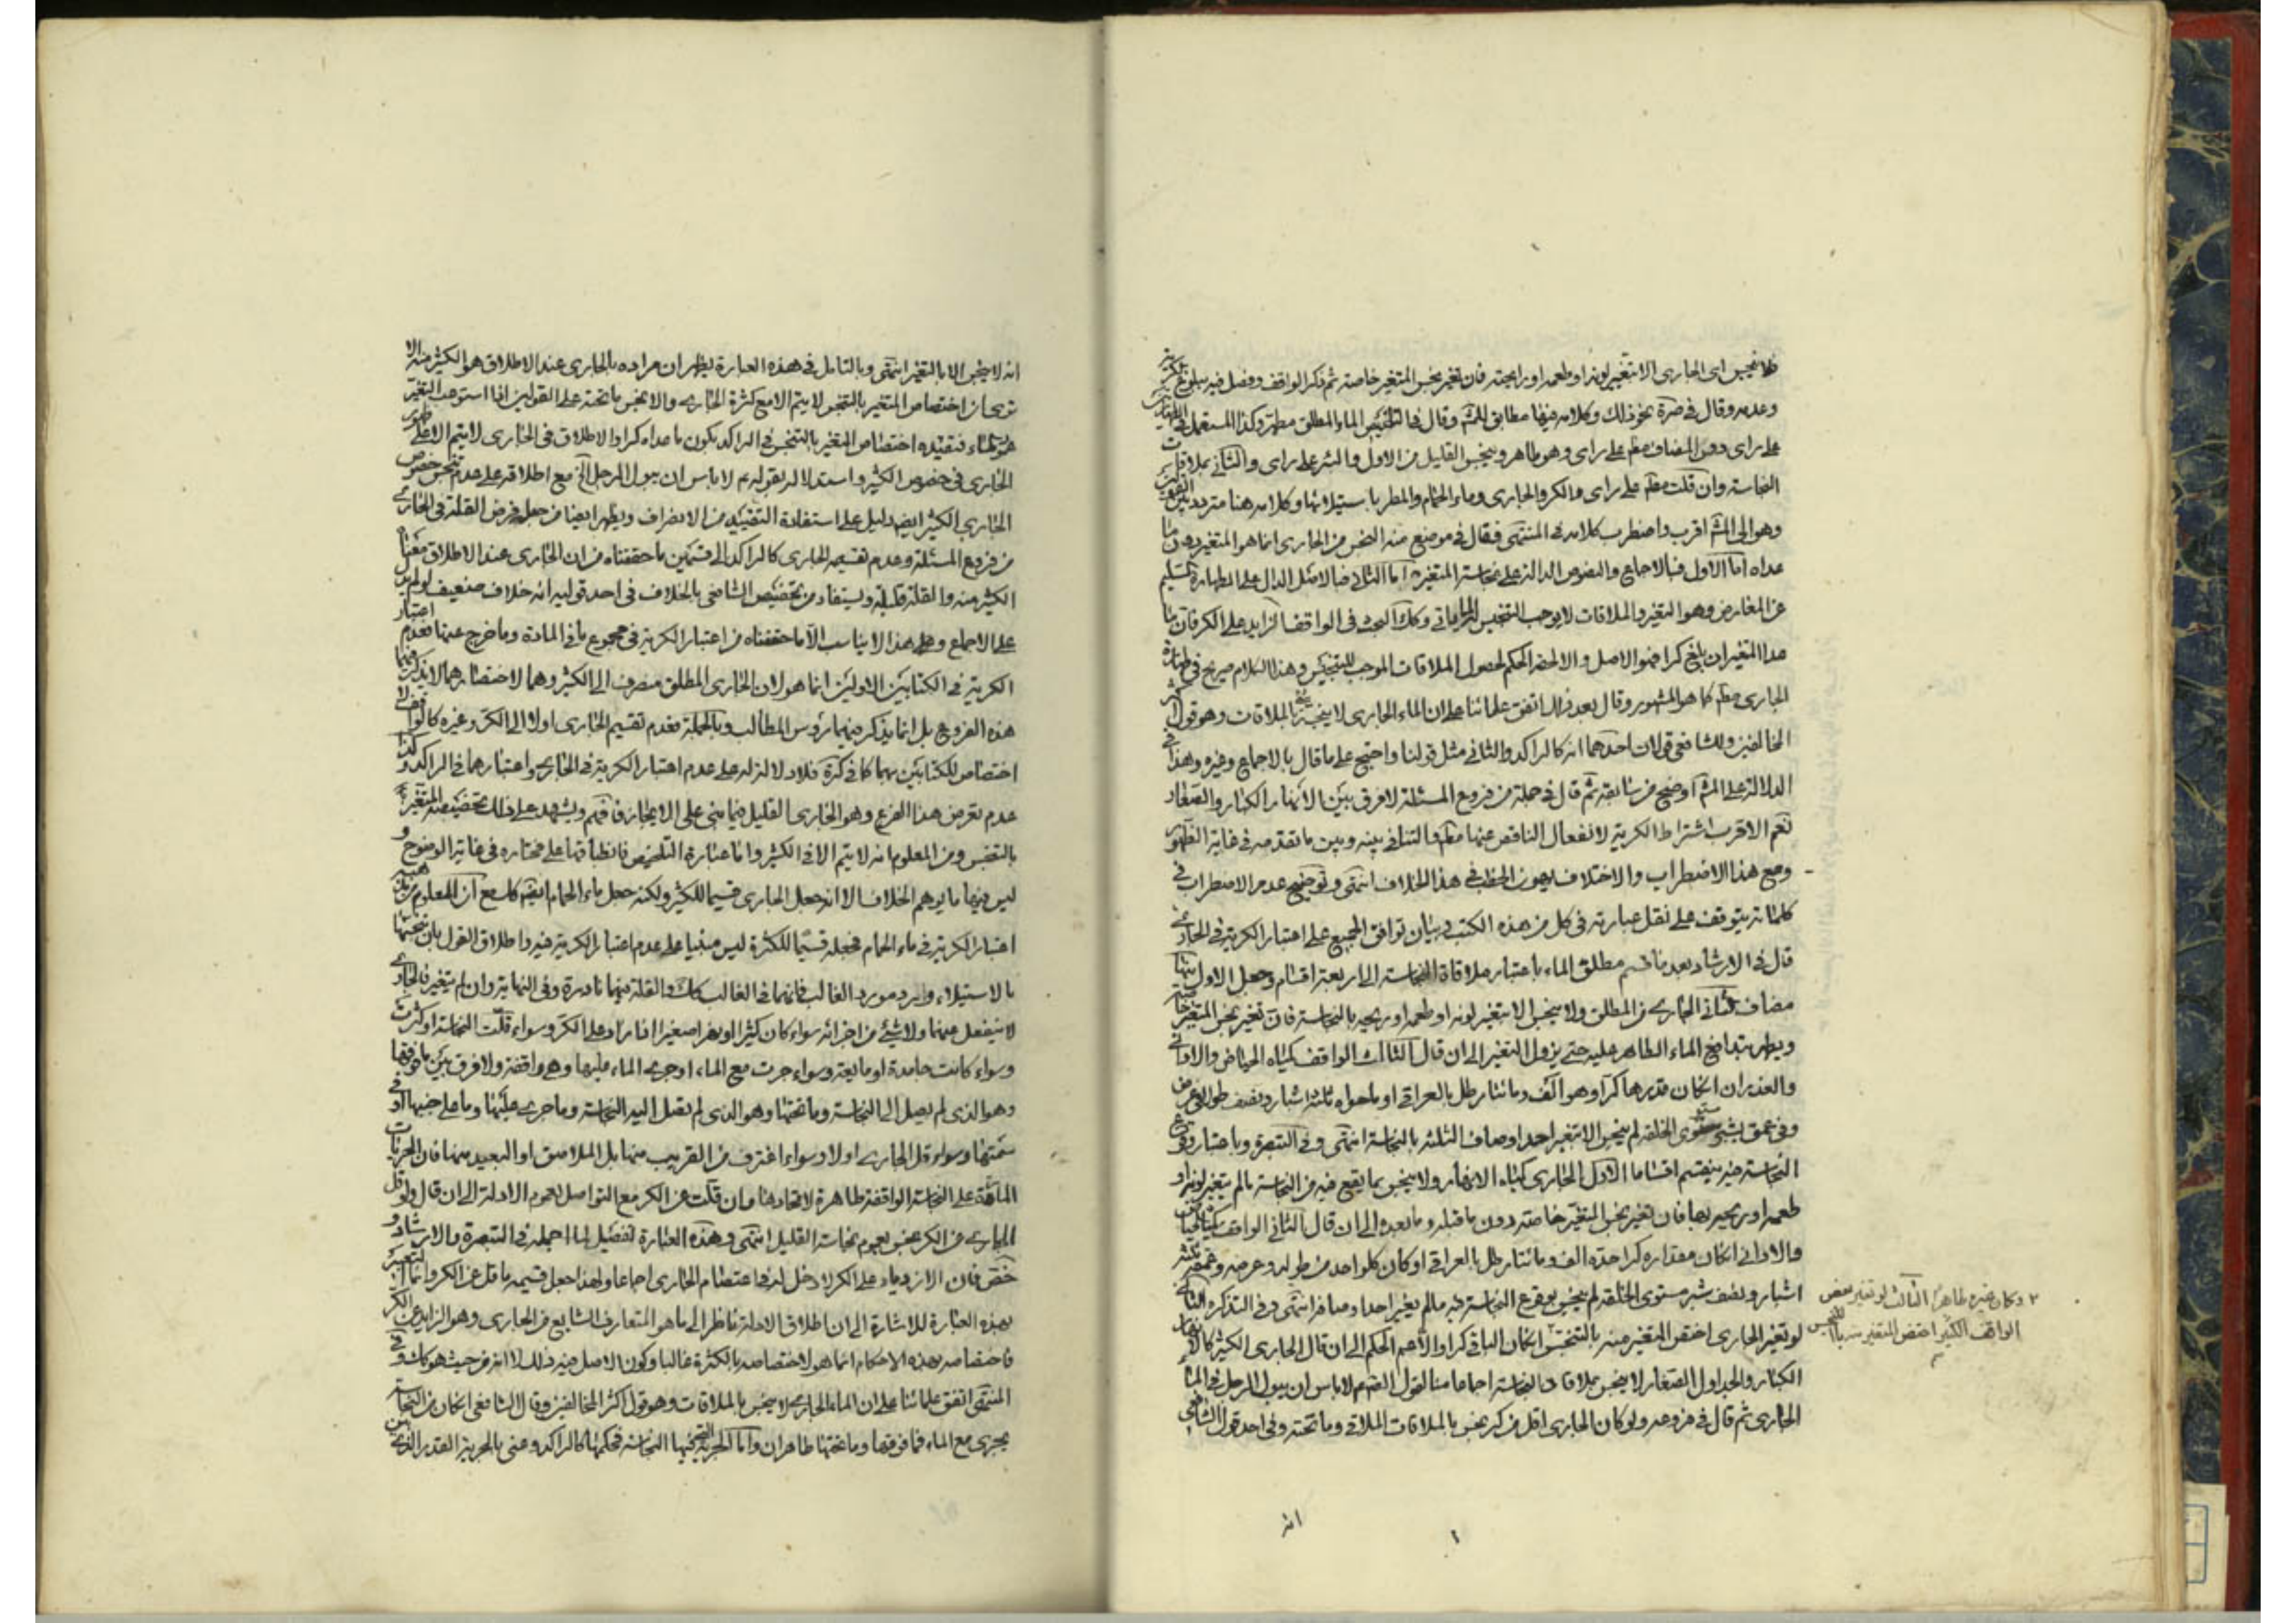 فلا ينجس اى الجارى الا بتغير لونه او طعمه او رايحته فان تغير نجس المتغير خاصة ثم ذكر الواقف وفصل فيه ببلوغ كرية
وعدمه وقال فى نحو ذلك وكلامه فيها مطابق للمشهور وقال فى التلخيص الماء المطلق مطهر وكذا المستعمل فى
على راى دون المضاف مطم على راى وهو طاهر وينجس القليل من الاول والبئر على راى والثانى بملاقات
النجاسة وان قلت مطم على راى والكر والجارى وماء الحمام والمطر باستيلائها وكلامه هنا متردد بين
وهو الى المشهور اقرب واضطرب كلامه فى المنتهى فقال فى موضع منه النجس من الجارى انما هو المتغير دون ما
عداه اما الاول فبالاجماع والنصوص الدالة على نجاسة المتغير واما الثانى فبالاصل الدال على الطهارة السليم
عن المعارض وهو التغير والملاقات لا يوجب التنجيس لما ياتى وكذلك البحث فى الواقف الزايد على الكر فان ما
عدا المتغير ان بلغ كرا فهو الاصل والا لحقه الحكم لحصول الملاقات الموجب للتنجيس وهذا الكلام صريح فى طهارة
الجارى مطم كما هو المشهور وقال بعد ذلك اتفق علمائنا على ان الماء الجارى لا ينجس بالملاقات وهو قول
المخالفين وللشافعى قولان احدهما انه كالراكد والثانى مثل قولنا واحتج على ما قال بالاجماع وغيره وهذا فى
الدلالة على المشهور اوضح من سابقه ثم قال فى جملة من فروع المسئلة لا فرق بين الانهار الكبار والصغار
نعم الاقرب اشتراط الكرية لانفعال الناقص عنها مطم والتنافى بينه وبين ما تقدمه فى غاية الظهور
ومع هذا الاضطراب والاختلاف يهون الخطب فى هذا الخلاف انتهى وتوضيح عدم الاضطراب فى
كلماته يتوقف على نقل عبارته فى كل من هذه الكتب وبيان توافق الجميع على اعتبار الكرية فى الجارى
قال فى الارشاد بعد ما قسم مطلق الماء باعتبار ملاقاة النجاسة الى اربعة اقسام وجعل الاول منها
مضاف الثانى الجارى من المطلق ولا ينجس الا بتغير لونه او طعمه او ريحه بالنجاسة فان تغير نجس المتغير خاصة
ويطهر بتدافع الماء الطاهر عليه حتى يزول التغير الى ان قال الثالث الواقف كمياه الحياض والاوانى
والغدران ان كان قدرها كرا وهو الف ومائتا رطل بالعراقى او ما حواه ثلثة اشبار ونصف طولا فى عرض
وفى عمق بشبر مستوى الخلقة لم ينجس الا بتغير احد اوصاف الثلثة بالنجاسة انتهى وفى التبصرة وباعتبار وقوع
النجاسة فيه ينقسم اقساما الاول الجارى كمياه الانهار ولا ينجس بما يقع فيه من النجاسة ما لم يتغير لونه او
طعمه او ريحه بها فان تغير نجس المتغير خاصة دون ما قبله وما بعده الى ان قال الثانى الواقف كمياه الحياض
والاوانى ان كان مقداره كرا حده الف ومائتا رطل بالعراقى او كان كل واحد من طوله وعرضه وعمقه ثلثة
اشبار ونصف شبر مستوى الخلقة لم ينجس بوقوع النجاسة فيه ما لم يغير احد اوصافه انتهى وفى التذكرة الثانى
لو تغير الجارى اختص المتغير منه بالتنجس
٢ وكان غيره طاهرا الثالث لو تغير بعض
الواقف الكثير اختص المتغير منه بالتنجس
ان كان الباقى كرا والا عم الحكم الى ان قال الجارى الكثير كالانهار
الكبار والجداول الصغار لا ينجس بملاقات النجاسة اجماعا منا لقول الصم لا باس ان يبول الرجل فى الماء
الجارى ثم قال فى فروعه ولو كان الجارى اقل من كر نجس بالملاقات الملاقى وما تحته وفى احد قول الشافعى
انه
انه لا ينجس الا بالتغير انتهى وبالتامل فى هذه العبارة يظهر ان مراده بالجارى عند الاطلاق هو الكثير منه الا
ترى ان اختصاص المتغير بالتنجس لا يتم الا مع كثرة الجارى والا نجس ما تحته على القولين اذا استوعب التغير
عمود الماء فتقييده اختصاص المتغير بالتنجس فى الراكد بكون ما عداه كرا والاطلاق فى الجارى لا يتم الا على ظهور
الجارى فى خصوص الكثير واستدلاله بقوله م لا باس ان يبول الرجل الخ مع اطلاقه على عدم تنجس خصوص
الجارى الكثير ايضا دليل على استفادة التقييد من الانصراف ويظهر ايضا من جعله فرض القلة فى الجارى
من فروع المسئلة وعدم تقسيمه الجارى كالراكد الى قسمين ما حققناه من ان الجارى عند الاطلاق معناه
الكثير منه والقلة قليلة ويستفاد من تخصيص الشافعى بالخلاف فى احد قوليه انه خلاف ضعيف لم يدل
على الاجماع وعلى هذا لا يناسب الا ما حققناه من اعتبار الكرية فى مجموع ما فى المادة وما خرج عنها فعدم اعتبار
الكرية فى الكتابين الاولين انما هو لان الجارى المطلق منصرف الى الكثير وهما لاختصارهما لا يذكر فيهما
هذه الفروع بل انما يذكر فيهما رؤس المطالب وبالجملة فعدم تقسيم الجارى اولا الى الكر وغيره كالواقف لا
اختصاص للكتابين بهما كما فى كرة فلا دلالة له على عدم اعتبار الكرية فى الجارى واعتبارها فى الراكد وكذا
عدم تعرض هذا الفرع وهو الجارى القليل فيما بنى على الايجاز فافهم ويشهد على ذلك تخصيصه المتغير
بالتنجس ومن المعلوم انه لا يتم الا فى الكثير واما عبارة التلخيص فانطباقها على مختاره فى غاية الوضوح و
ليس فيها ما يوهم الخلاف الا انه جعل الجارى قسيما للكثير ولكنه جعل ماء الحمام ايضا كذلك مع ان المعلوم من مذهبه
اعتبار الكرية فى ماء الحمام فجعله قسيما للكثرة ليس مبنيا على عدم اعتبار الكرية فيه واطلاق القول بان تنجسها
بالاستيلاء وارد مورد الغالب فانهما فى الغالب كذلك والقلة فيهما نادرة وفى النهاية وان لم يتغير فالجارى
لا ينفعل عنها ولا شيئ من اجزائه سواء كان كثيرا او نهرا صغيرا اذا زاد على الكر وسواء قلت النجاسة او كثرت
وسواء كانت جامدة او مايعة وسواء جرت مع الماء او جرى الماء عليها وهى واقفة ولا فرق بين ما فوقها
وهو الذى لم يصل الى النجاسة وما تحتها وهو الذى لم يصل اليه النجاسة وما جرى عليها وما على جنبيها او فى
سمتها وسواء قل الجارى اولا وسواء اغترف من القريب منها بل الملاصق او البعيد منها فان الجريات
المارة على النجاسة الواقفة طاهرة لاتحادها وان قلت عن الكر مع التواصل لعموم الادلة الى ان قال ولو قل
الجارى عن الكر نجس لعموم نجاسة القليل انتهى وهذه العبارة تفصيل لما اجمله فى التبصرة والارشاد و
خص فان الازدياد على الكر لا دخل له فى اعتصام الجارى اجماعا ولهذا جعل قسيمه ما قل عن الكر وانما التعبير
بهذه العبارة للاشارة الى ان اطلاق الادلة ناظر الى ما هو المتعارف الشايع من الجارى وهو الزايد عن الكر
فاختصاصه بهذه الاحكام انما هو لاختصاصه بالكثرة غالبا وكون الاصل فيه ذلك لا انه من حيث هو كذلك وفى
المنتهى اتفق علمائنا على ان الماء الجارى لا ينجس بالملاقات وهو قول اكثر المخالفين وقال الشافعى ان كان من النجاسة
يجرى مع الماء فما فوقها وما تحتها طاهران واما الجرية التى فيها النجاسة فحكمها كالراكد وعنى بالجرية القدر الذى بين